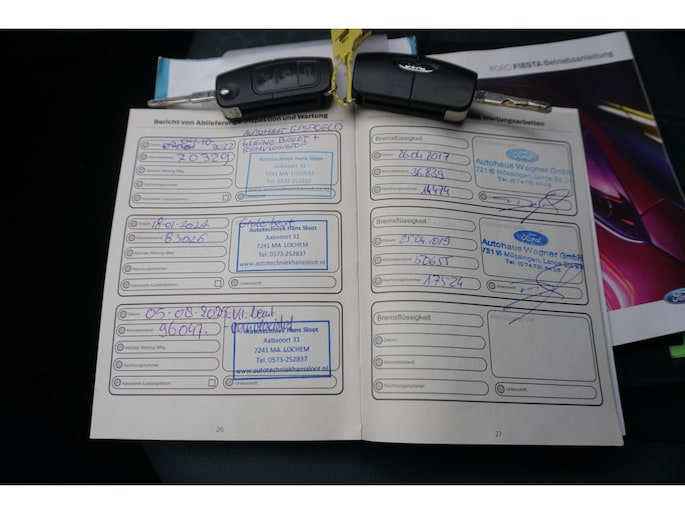 FORD FIESTA Betriebsanleitung
Bericht von Ablieferungsinspektion und Wartung
2022
Kilometerstand
70329
Nächste Wartung fällig
Rechnungsnummer
Karosserie-/Lackinspektion
KLEINE BEURT +
REMVLOEISTOF
Autotechniek Hans Sloot
Aalsvoort 31
7241 MA LOCHEM
Tel. 0573-252837
www.autotechniekhanssloot.nl
Datum
18-01-2024
Kilometerstand
83026
Nächste Wartung fällig
Rechnungsnummer
Karosserie-/Lackinspektion
Grote beurt
Autotechniek Hans Sloot
Aalsvoort 31
7241 MA LOCHEM
Tel. 0573-252837
www.autotechniekhanssloot.nl
Datum
05-08-2025
Kilometerstand
96047.
Nächste Wartung fällig
Rechnungsnummer
Karosserie-/Lackinspektion
Kl. beurt
Autotechniek Hans Sloot
Aalsvoort 31
7241 MA LOCHEM
Tel. 0573-252837
www.autotechniekhanssloot.nl
Unterschrift
26
Wartungsarbeiten
Bremsflüssigkeit
Datum
26.04.2017
Kilometerstand
36.839
Rechnungsnummer
14474
Ford
Autohaus Wagner GmbH
72116 Mössingen, Lange Str.
Tel. (07473) 94 08
Unterschrift
Bremsflüssigkeit
Datum
25.04.2019
Kilometerstand
50655
Rechnungsnummer
17524
Ford
Autohaus Wagner GmbH
72116 Mössingen, Lange Str.
Tel. (07473) 94 08
Unterschrift
Bremsflüssigkeit
Datum
Kilometerstand
Rechnungsnummer
Unterschrift
27